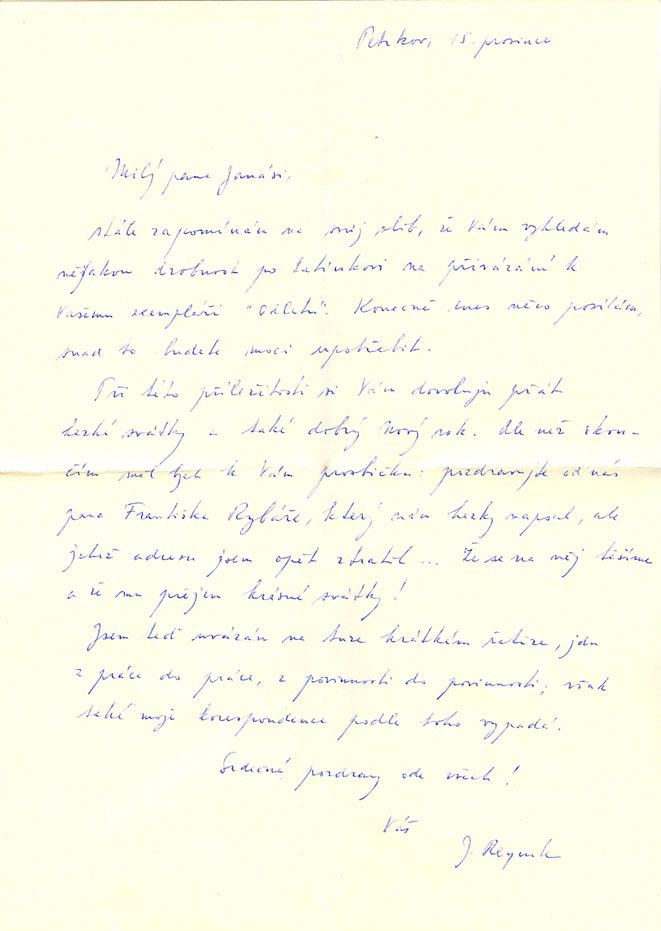 Petrkov, 15. prosince
Milý pane Janási,
stále zapomínám na svůj slib, že Vám vyhledám
nějakou drobnost po tatínkovi na přivázání k
Vašemu exempláři "Odletu". Konečně dnes něco posílám,
snad to budete moci upotřebit.
Při této příležitosti si Vám dovoluji přát
hezké svátky a také dobrý Nový rok. Ale než skon-
čím měl bych k Vám prosbičku: pozdravujte od nás
pana Františka Rybáře, který nám hezky napsal, ale
jehož adresu jsem opět ztratil... Že se na něj těšíme
a že mu přejem krásné svátky!
Jsem teď uvázán na tuze krátkém řetěze, jdu
z práce do práce, z povinnosti do povinnosti; však
také moje korespondence podle toho vypadá.
Srdečné pozdravy ode všech!
Váš
J. Reynek